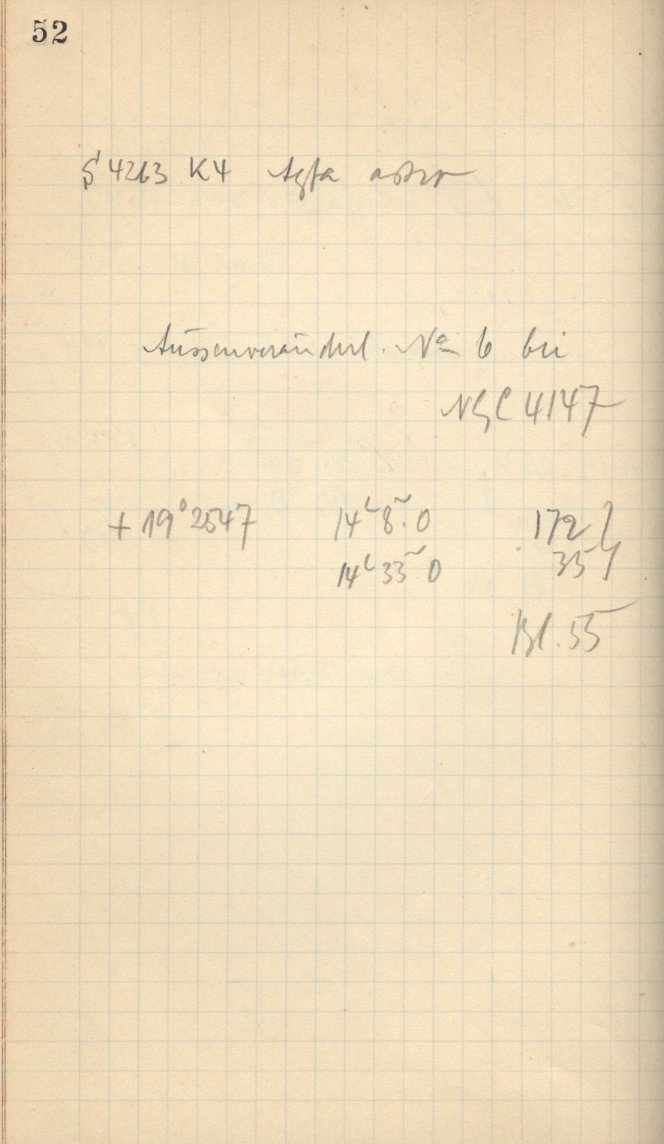 52
S 4263 K4 Agfa astro
Aussenveränderl. No 6 bei
NGC 4147
+ 19° 2547 14h 8m.0 172 }
14h 33m.0 35 }
Bl. 55